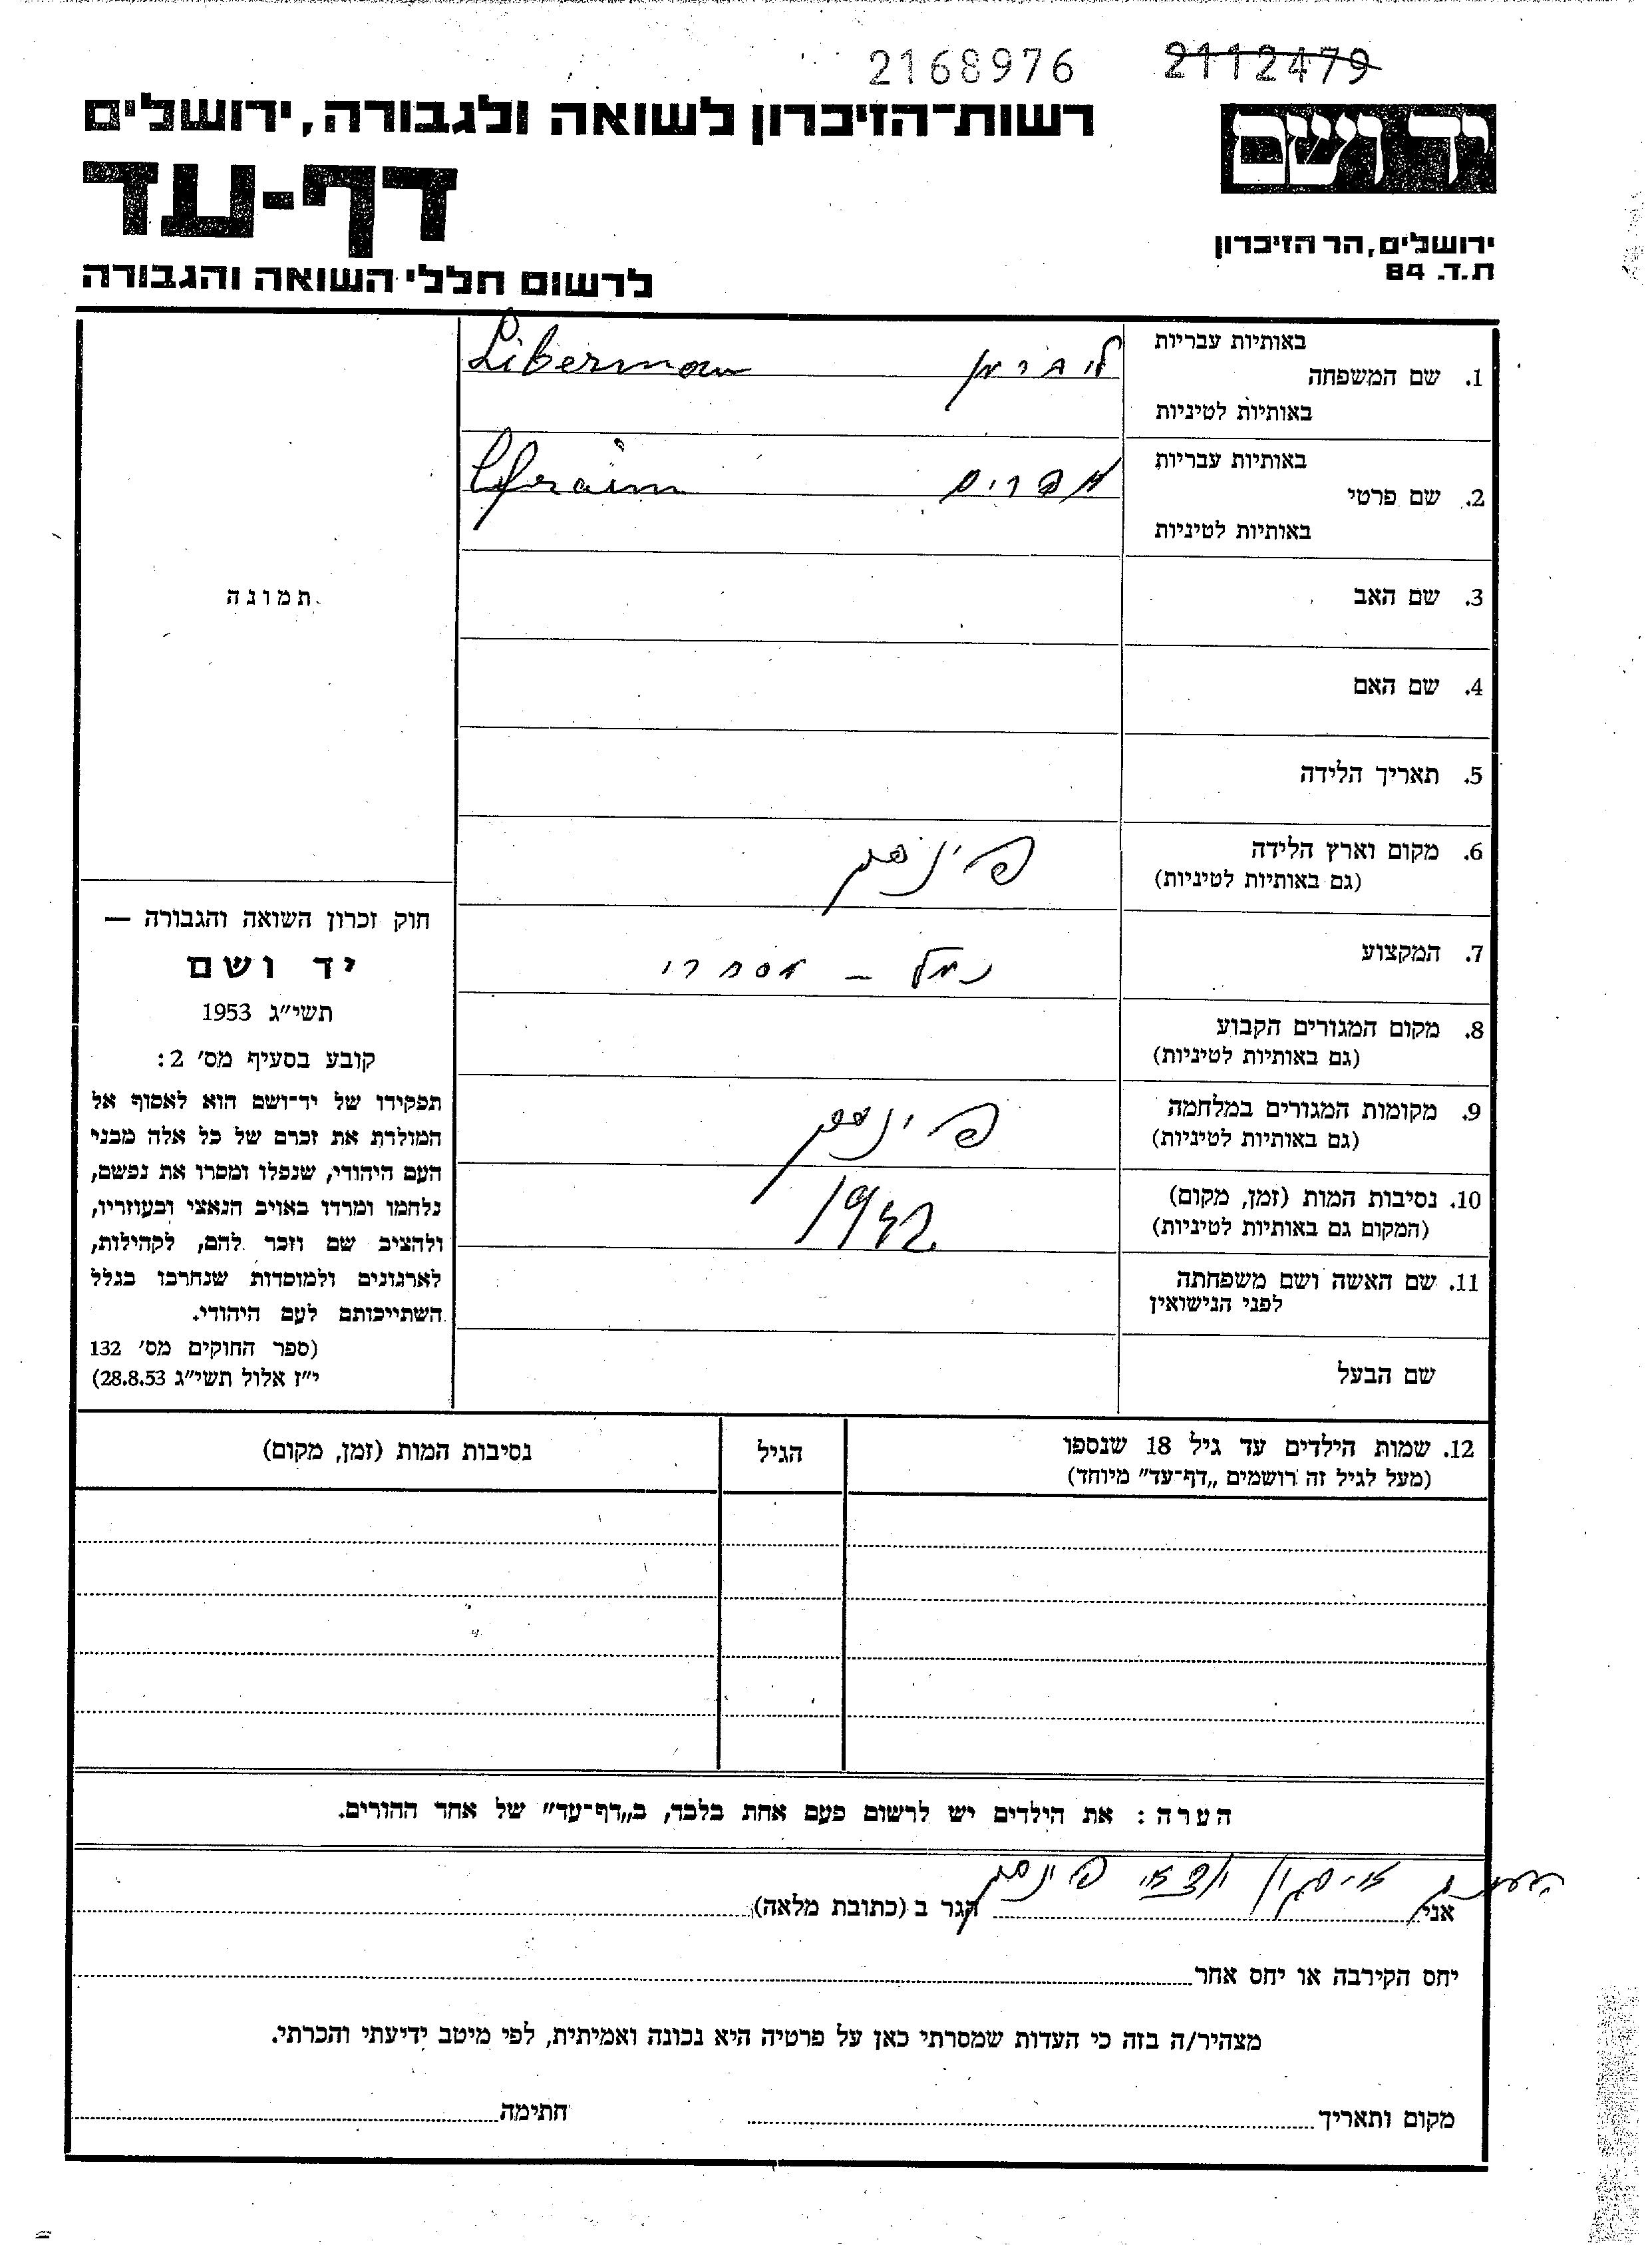 2168976 2112479
יד ושם
רשות־הזיכרון לשואה ולגבורה, ירושלים
דף-עד
ירושלים, הר הזיכרון
ת.ד. 84
לרשום חללי השואה והגבורה
באותיות עבריות
1. שם המשפחה ליברמן Liberman
באותיות לטיניות
באותיות עבריות
2. שם פרטי אפרים Efraim
באותיות לטיניות
3. שם האב
4. שם האם
5. תאריך הלידה
6. מקום וארץ הלידה פינסק
(גם באותיות לטיניות)
7. המקצוע - מסחרי
8. מקום המגורים הקבוע
(גם באותיות לטיניות)
9. מקומות המגורים במלחמה פינסק
(גם באותיות לטיניות)
10. נסיבות המות (זמן, מקום) 1942
(המקום גם באותיות לטיניות)
11. שם האשה ושם משפחתה
לפני הנישואין
שם הבעל
תמונה
חוק זכרון השואה והגבורה —
יד ושם
תשי״ג 1953
קובע בסעיף מס׳ 2:
תפקידו של יד־ושם הוא לאסוף אל
המולדת את זכרם של כל אלה מבני
העם היהודי, שנפלו ומסרו את נפשם,
נלחמו ומרדו באויב הנאצי ובעוזריו,
ולהציב שם וזכר להם, לקהילות,
לארגונים ולמוסדות שנחרבו בגלל
השתייכותם לעם היהודי.
(ספר החוקים מס׳ 132
י״ז אלול תשי״ג 28.8.53)
12. שמות הילדים עד גיל 18 שנספו הגיל נסיבות המות (זמן, מקום)
(מעל לגיל זה רושמים „דף־עד״ מיוחד)
הערה: את הילדים יש לרשום פעם אחת בלבד, ב„דף־עד״ של אחד ההורים.
ארגון יוצאי פינסק
אני הגר ב (כתובת מלאה)
יחס הקירבה או יחס אחר
מצהיר/ה בזה כי העדות שמסרתי כאן על פרטיה היא נכונה ואמיתית, לפי מיטב ידיעתי והכרתי.
מקום ותאריך חתימה